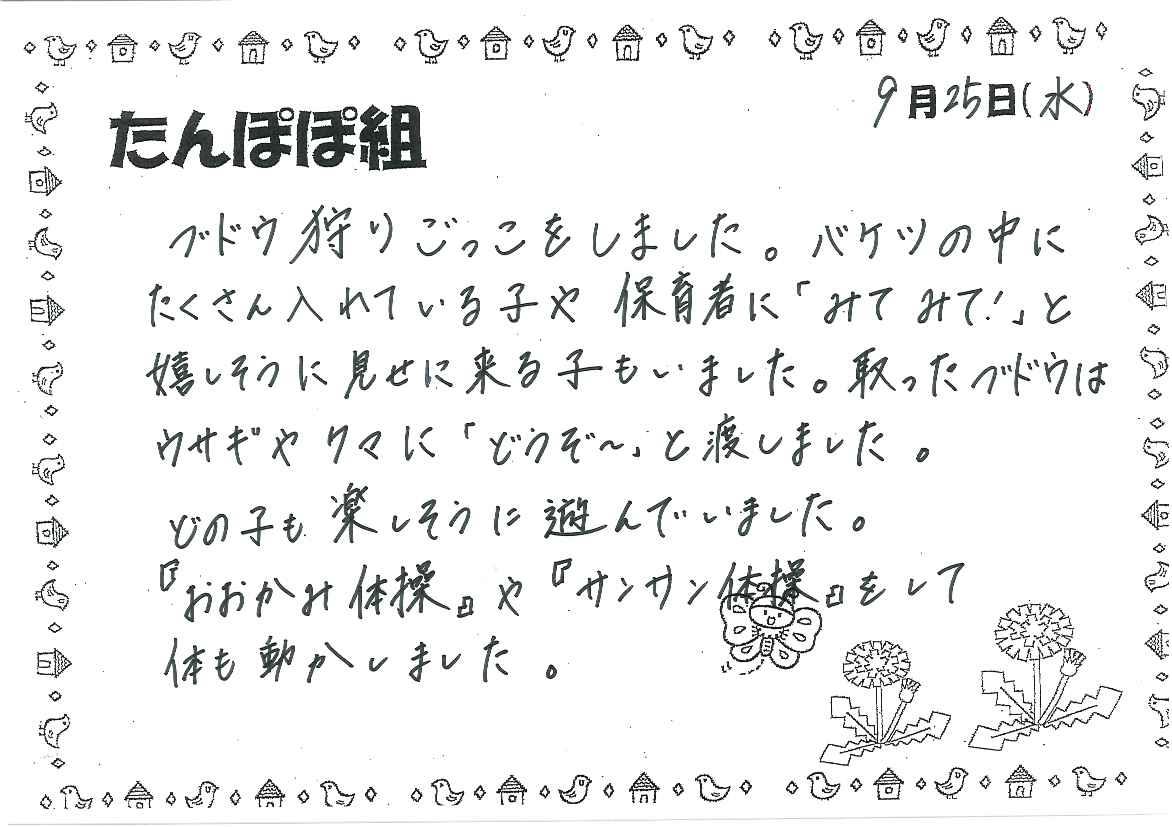 9月25日(水)
たんぽぽ組
ブドウ狩りごっこをしました。バケツの中に
たくさん入れている子や保育者に「みてみて!」と
嬉しそうに見せに来る子もいました。取ったブドウは
ウサギやクマに「どうぞ〜」と渡しました。
どの子も楽しそうに遊んでいました。
『おおかみ体操』や『サンサン体操』をして
体も動かしました。